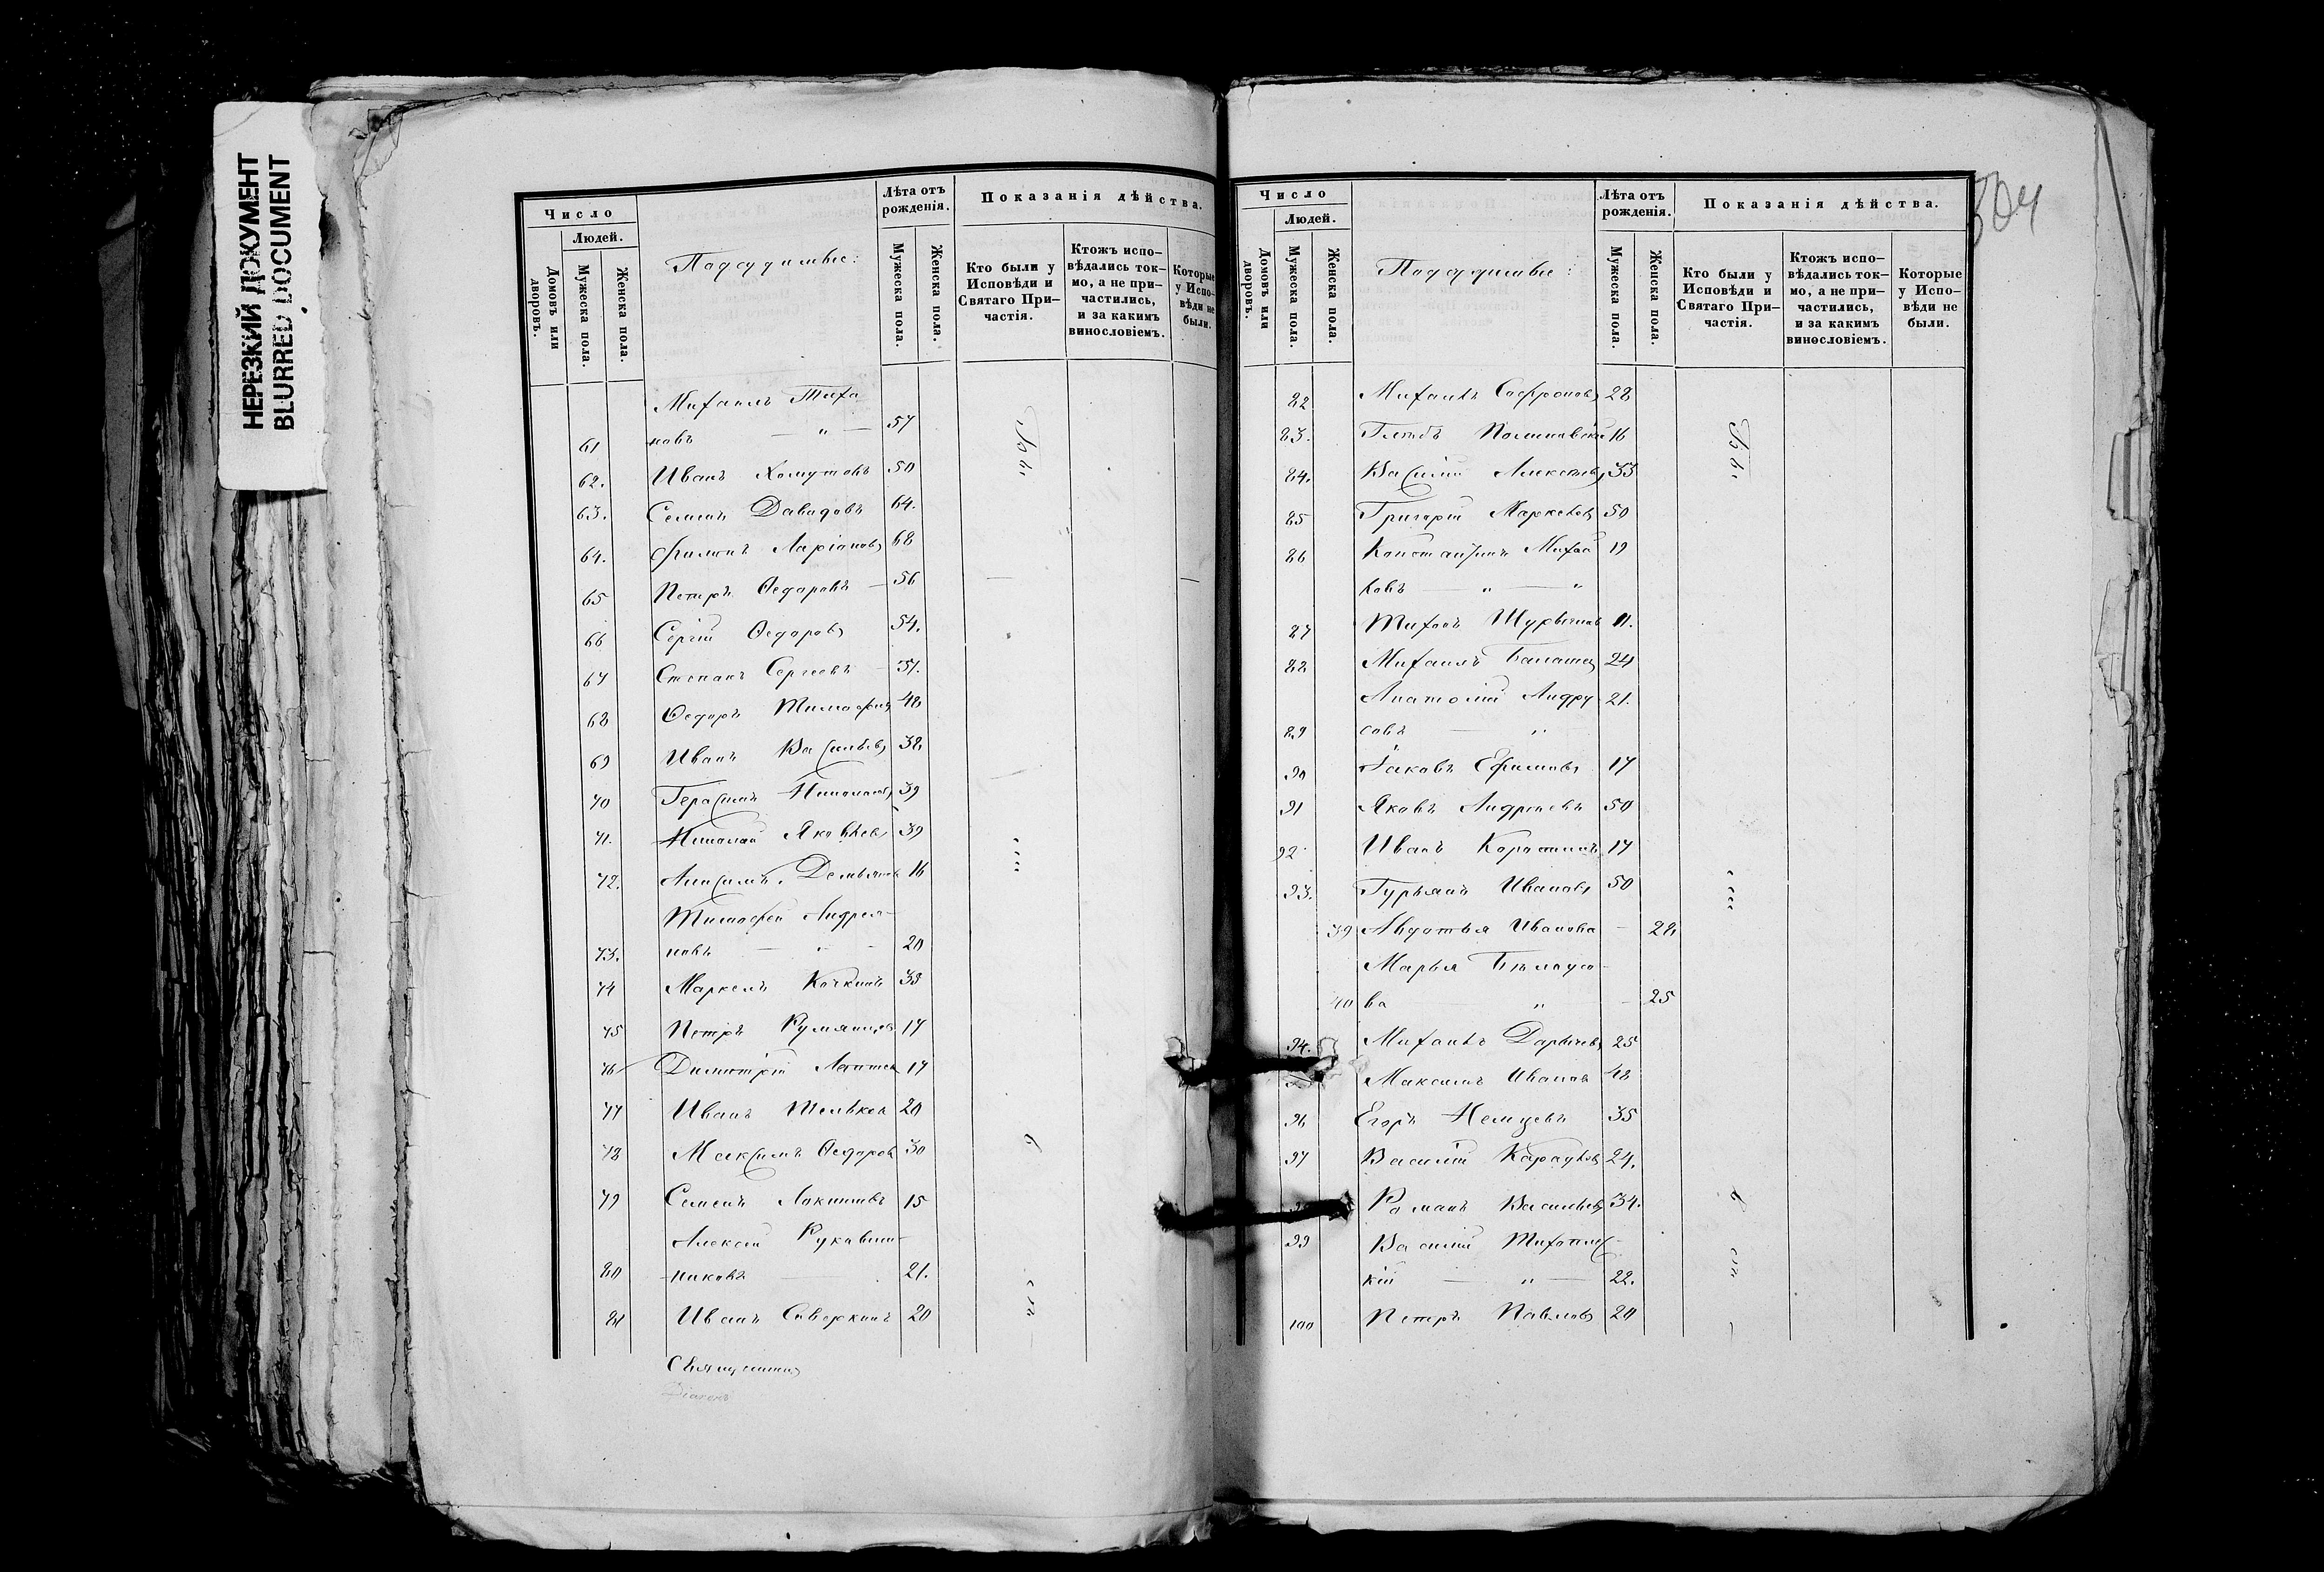 НЕРЕЗКИЙ ДОКУМЕНТ
BLURRED DOCUMENT
Число
Людей.
Домовъ или дворовъ.
Мужеска пола.
Женска пола.
Подсудимые:
Лѣта отъ рожденія.
Мужеска пола.
Женска пола.
Показанія дѣйства.
Кто были у Исповѣди и Святаго При-
частія.
Ктожъ испо-
вѣдались ток-
мо, а не при-
частились,
и за какимъ
винословіемъ.
Которые
у Испо-
вѣди не
были.
Михаилъ Тихо
61 новъ — „ — 57
62. Иванъ Хомутовъ 50
63. Семенъ Давидовъ 64.
64. Филипъ Ларіоновъ 68
65 Петръ Ѳедоровъ — 56
66 Сергій Ѳедоровъ 54.
67 Степанъ Сергеевъ 51.
68 Ѳедоръ Тимофеевъ 48
69 Иванъ Васильевъ 38
70 Герасимъ Николаевъ 39
71. Николай Яковлевъ 39
72. Анисимъ Демьяновъ 16
Тимофей Андрея-
73. новъ — „ - 20
74 Маркелъ Кочкинъ 38
75 Петръ Румянцевъ 17
76 Димитрій 17
77 Иванъ 20
78 Максимъ Ѳедоровъ 30
79 Семенъ 15
Алексей Рукавиш-
80 никовъ — 21.
81 Иванъ Сиворкинъ 20
Были
Священникъ
Діаконъ
504
Число
Людей.
Домовъ или дворовъ.
Мужеска пола.
Женска пола.
Подсудимые:
Лѣта отъ рожденія.
Мужеска пола.
Женска пола.
Показанія дѣйства.
Кто были у Исповѣди и Святаго При-
частія.
Ктожъ испо-
вѣдались ток-
мо, а не при-
частились,
и за какимъ
винословіемъ.
Которые
у Испо-
вѣди не
были.
82 Михаилъ Софроновъ 28
83. Глѣбъ 16
84. Василій Алексѣевъ 33
85 Григорій Маркеловъ 50
86 Константинъ Михай 19
ловъ — „ — „
87 Тихонъ 11.
88 Михаилъ 24
Анатолій Андру 21.
89 совъ — „
90 Іаковъ Ефимовъ 17
91 Яковъ Андреевъ 50
92 Иванъ Коростинъ 17
93. Гурьянъ Ивановъ 50
39 Авдотья Иванова - 28
Марья Бѣлоусо-
40 ва „ - 25
94. Михаилъ 25
Максимъ Ивановъ 48
96 Егоръ Немцевъ 35
97 Василій 24.
Романъ Васильевъ 34.
99 Василій
кій — „ — 22.
100 Петръ Павловъ 20
Были